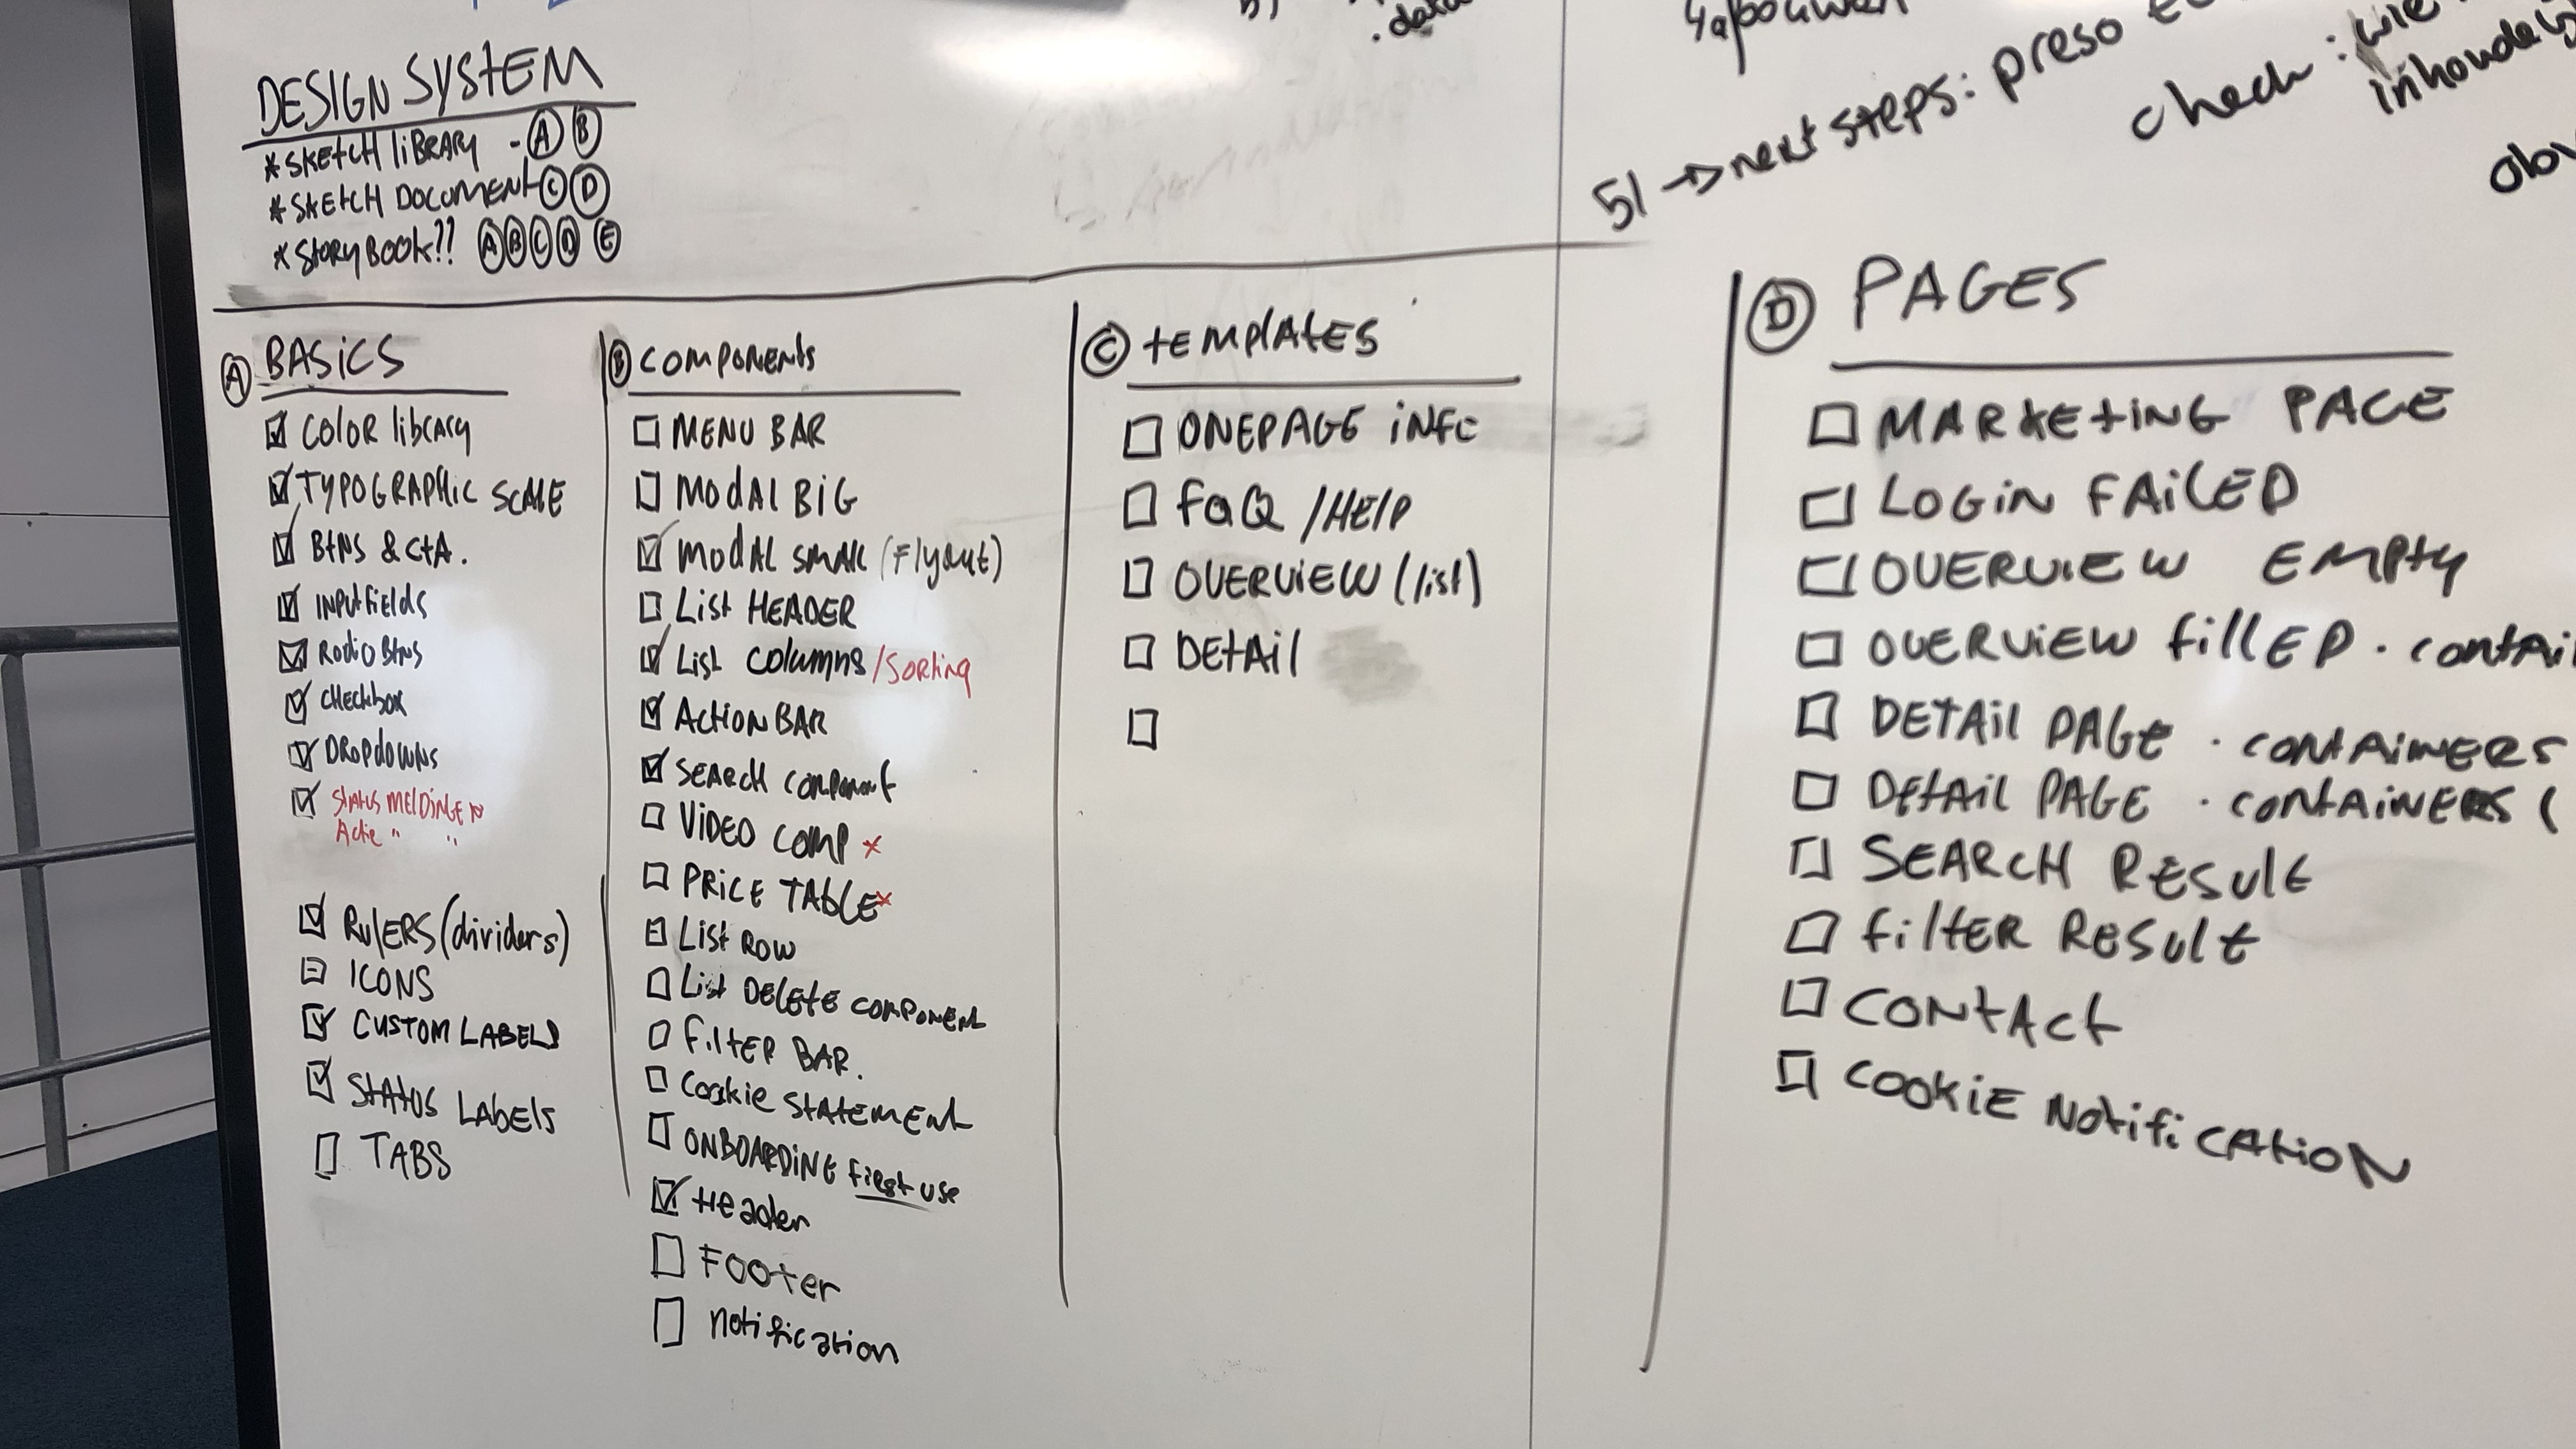 .data
DESIGN SYSTEM
* SKETCH LIBRARY - A B
* SKETCH DOCUMENT C D
* STORYBOOK?? A B C D E
5/ → next steps: preso
check: wie
A BASICS
☑ COLOR library
☑ TYPOGRAPHIC SCALE
☑ BTNS & CTA.
☑ INPUTFIELDS
☑ Radio BTNS
☑ CHECKBOX
☑ DROPDOWNS
☑ STATUS MELDINGEN
Actie " "
☑ RULERS (dividers)
⊟ ICONS
☑ CUSTOM LABELS
☑ STATUS LABELS
☐ TABS
B COMPONENTS
☐ MENU BAR
☐ MODAL BIG
☑ MODAL SMALL (Flyout)
☐ LIST HEADER
☑ LIST COLUMNS /Sorting
☑ ACTION BAR
☑ SEARCH COMPONENT
☐ VIDEO COMP x
☐ PRICE TABLE x
⊟ LIST ROW
☐ LIST DELETE COMPONENT
☐ FILTER BAR.
☐ COOKIE STATEMENT
☐ ONBOARDING first use
☑ Header
☐ Footer
☐ notification
C TEMPLATES
☐ ONEPAGE INFO
☐ FAQ /HELP
☐ OVERVIEW (list)
☐ DETAIL
☐
D PAGES
☐ MARKETING PAGE
☐ LOGIN FAILED
☐ OVERVIEW EMPTY
☐ OVERVIEW FILLED · contai
☐ DETAIL PAGE · CONTAINERS
☐ DETAIL PAGE · CONTAINERS (
☐ SEARCH RESULT
☐ FILTER RESULT
☐ CONTACT
☐ COOKIE NOTIFICATION